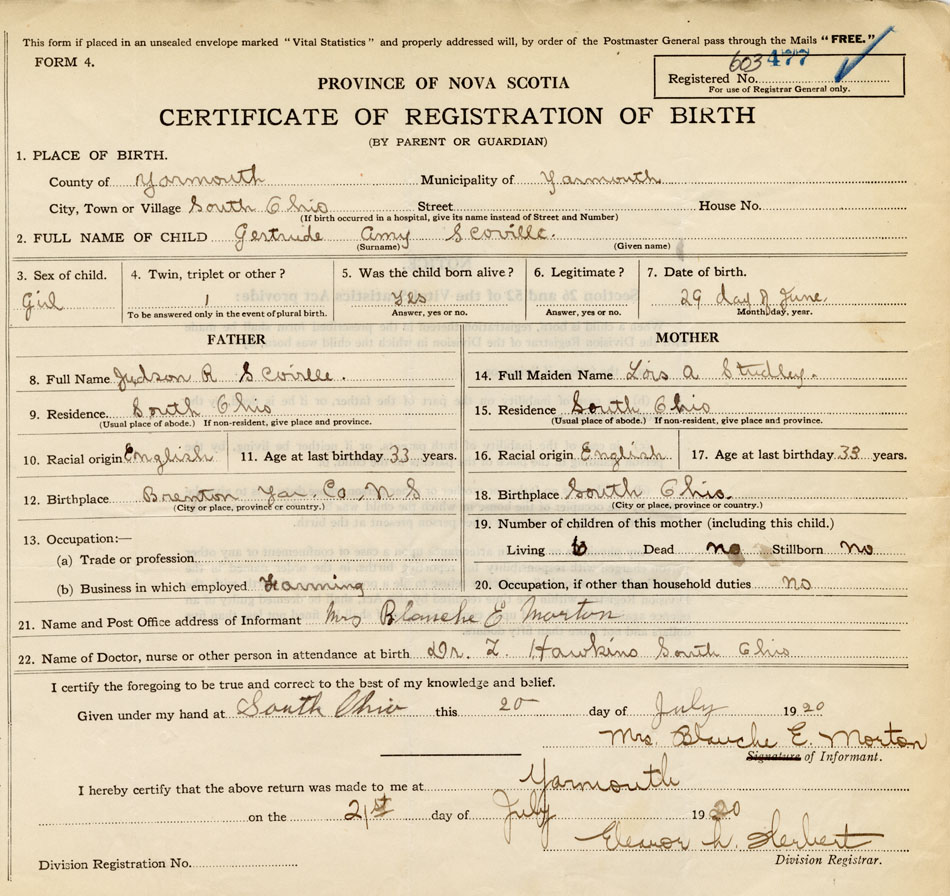 This form if placed in an unsealed envelope marked "Vital Statistics" and properly addressed will, by order of the Postmaster General pass through the Mails "FREE."
FORM 4.
603 477
Registered No.
For use of Registrar General only.
PROVINCE OF NOVA SCOTIA
CERTIFICATE OF REGISTRATION OF BIRTH
(BY PARENT OR GUARDIAN)
1. PLACE OF BIRTH.
County of Yarmouth Municipality of Yarmouth
City, Town or Village South Ohio Street House No.
(If birth occurred in a hospital, give its name instead of Street and Number)
2. FULL NAME OF CHILD Gertrude Amy Scoville.
(Surname) (Given name)
3. Sex of child. 4. Twin, triplet or other? 5. Was the child born alive? 6. Legitimate? 7. Date of birth.
Girl 1 Yes 29 day of June
To be answered only in the event of plural birth. Answer, yes or no. Answer, yes or no. Month, day, year.
FATHER MOTHER
8. Full Name Judson R Scoville. 14. Full Maiden Name Lois A Studley.
9. Residence South Ohio 15. Residence South Ohio
(Usual place of abode.) If non-resident, give place and province. (Usual place of abode.) If non-resident, give place and province.
10. Racial origin English 11. Age at last birthday 33 years. 16. Racial origin English 17. Age at last birthday 33 years.
12. Birthplace Brenton Yar. Co. N S 18. Birthplace South Ohio.
(City or place, province or country.) (City or place, province or country.)
13. Occupation:— 19. Number of children of this mother (including this child.)
(a) Trade or profession Living Dead no Stillborn no
(b) Business in which employed Farming 20. Occupation, if other than household duties no
21. Name and Post Office address of Informant Mrs Blanche E Morton
22. Name of Doctor, nurse or other person in attendance at birth Dr. Z. Hawkins South Ohio
I certify the foregoing to be true and correct to the best of my knowledge and belief.
Given under my hand at South Ohio this 20 day of July 1920
Mrs. Blanche E. Morton
Signature of Informant.
I hereby certify that the above return was made to me at Yarmouth
on the 21st day of July 1920
Eleanor L. Herbert
Division Registration No. Division Registrar.